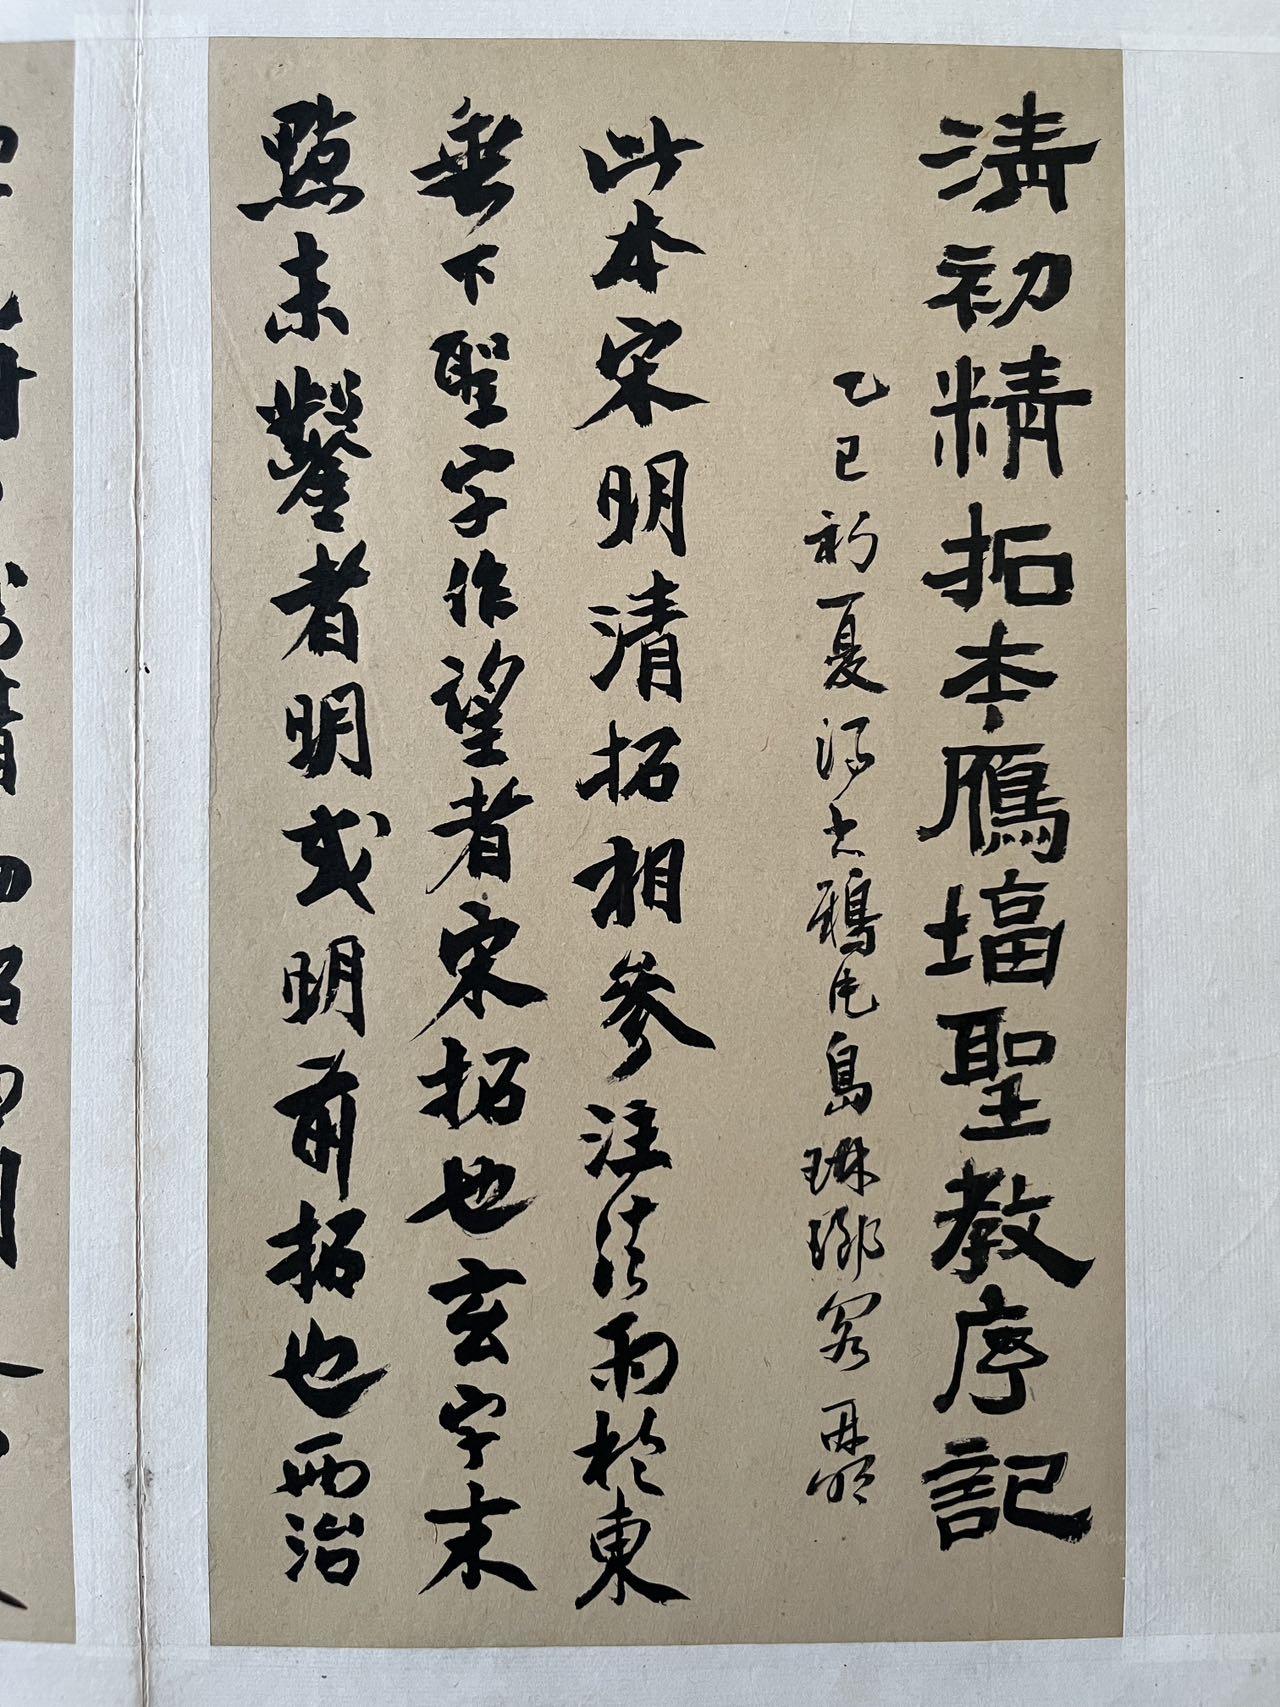 清初精拓本鴈墖聖教序記
乙巳初夏得島琳瑯客
此本宋明清拓相參注法雨於東
垂下聖字作望者宋拓也玄字末
點未鑿者明或明前拓也兩治